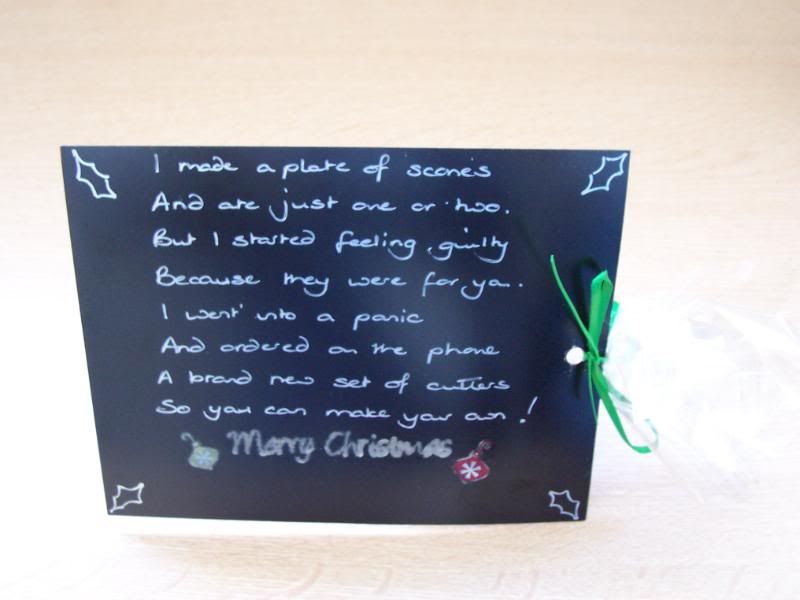 I made a plate of scones
And ate just one or two.
But I started feeling guilty
Because they were for you.
I went into a panic
And ordered on the phone
A brand new set of cutters
So you can make your own!
Merry Christmas